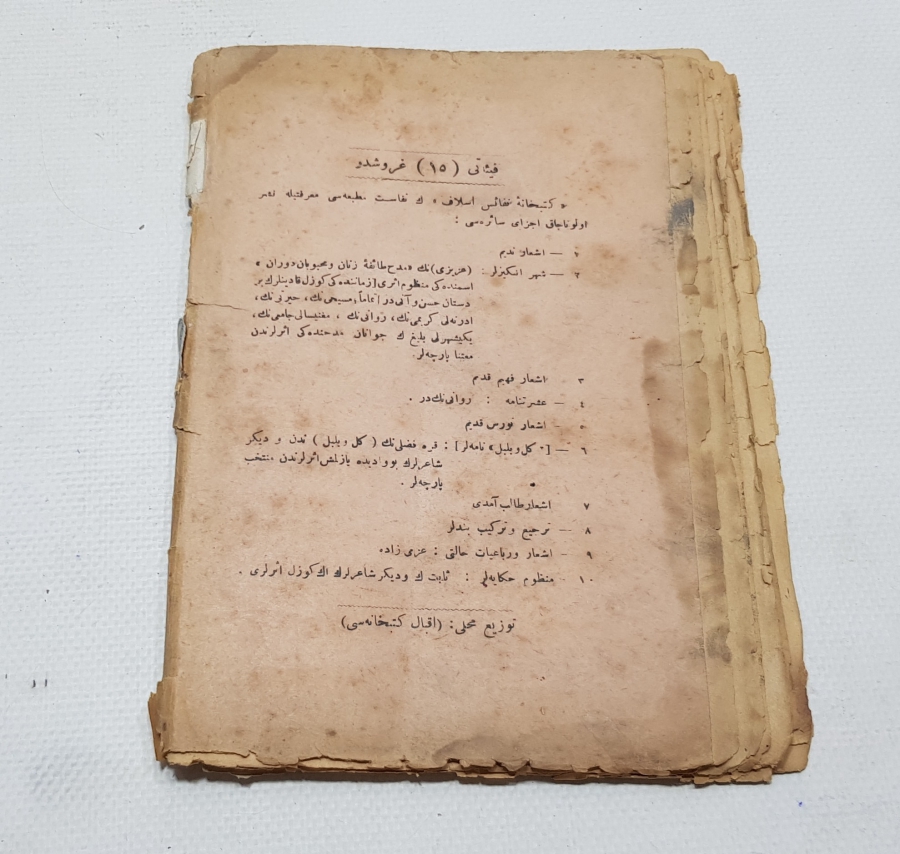 فيئاتى ( ١٥ ) غروشدر
« كتبخانهٔ نفائس اسلاف » ك نفاست مطبعه‌سى معرفتيله نشر
اولوناجاق اجزاى سائره‌سى :
١ — اشعار نديم
٢ — شهر انكيزلر : (عزيزى) نك «مدح طائفهٔ زنان ومحبوبان دوران »
اسمنده‌كى منظوم اثرى [زماننده‌كى كوزل قادينلرك بر
دستان حسن و آنى در] تماماً؛ مسيحى نك، حيرتى نك،
ادرنه‌لى كريمى نك، روانى نك ، مغنيسالى جامعى نك،
يكيشهرلى بليغ ك جوانان مدحنده‌كى اثرلرندن
معتنا پارچه‌لر.
٣ اشعار فهيم قديم
٤ — عشرتنامه : روانى نك در .
٥ — اشعار نورس قديم
٦ — [« كل و بلبل » نامه‌لر] : قره فضلى نك ( كل و بلبل ) ندن و ديكر
شاعرلرك بو واديده يازلمش اثرلرندن منتخب
پارچه‌لر .
٧ اشعار طالب آمدى
٨ — ترجيع و تركيب بندلر
٩ — اشعار ورباعيات حالتى : عزمى زاده
١٠ — منظوم حكايه‌لر : ثابت ك و ديكر شاعرلرك اڭ كوزل اثرلرى .
توزيع محلى: (اقبال كتبخانه‌سى)